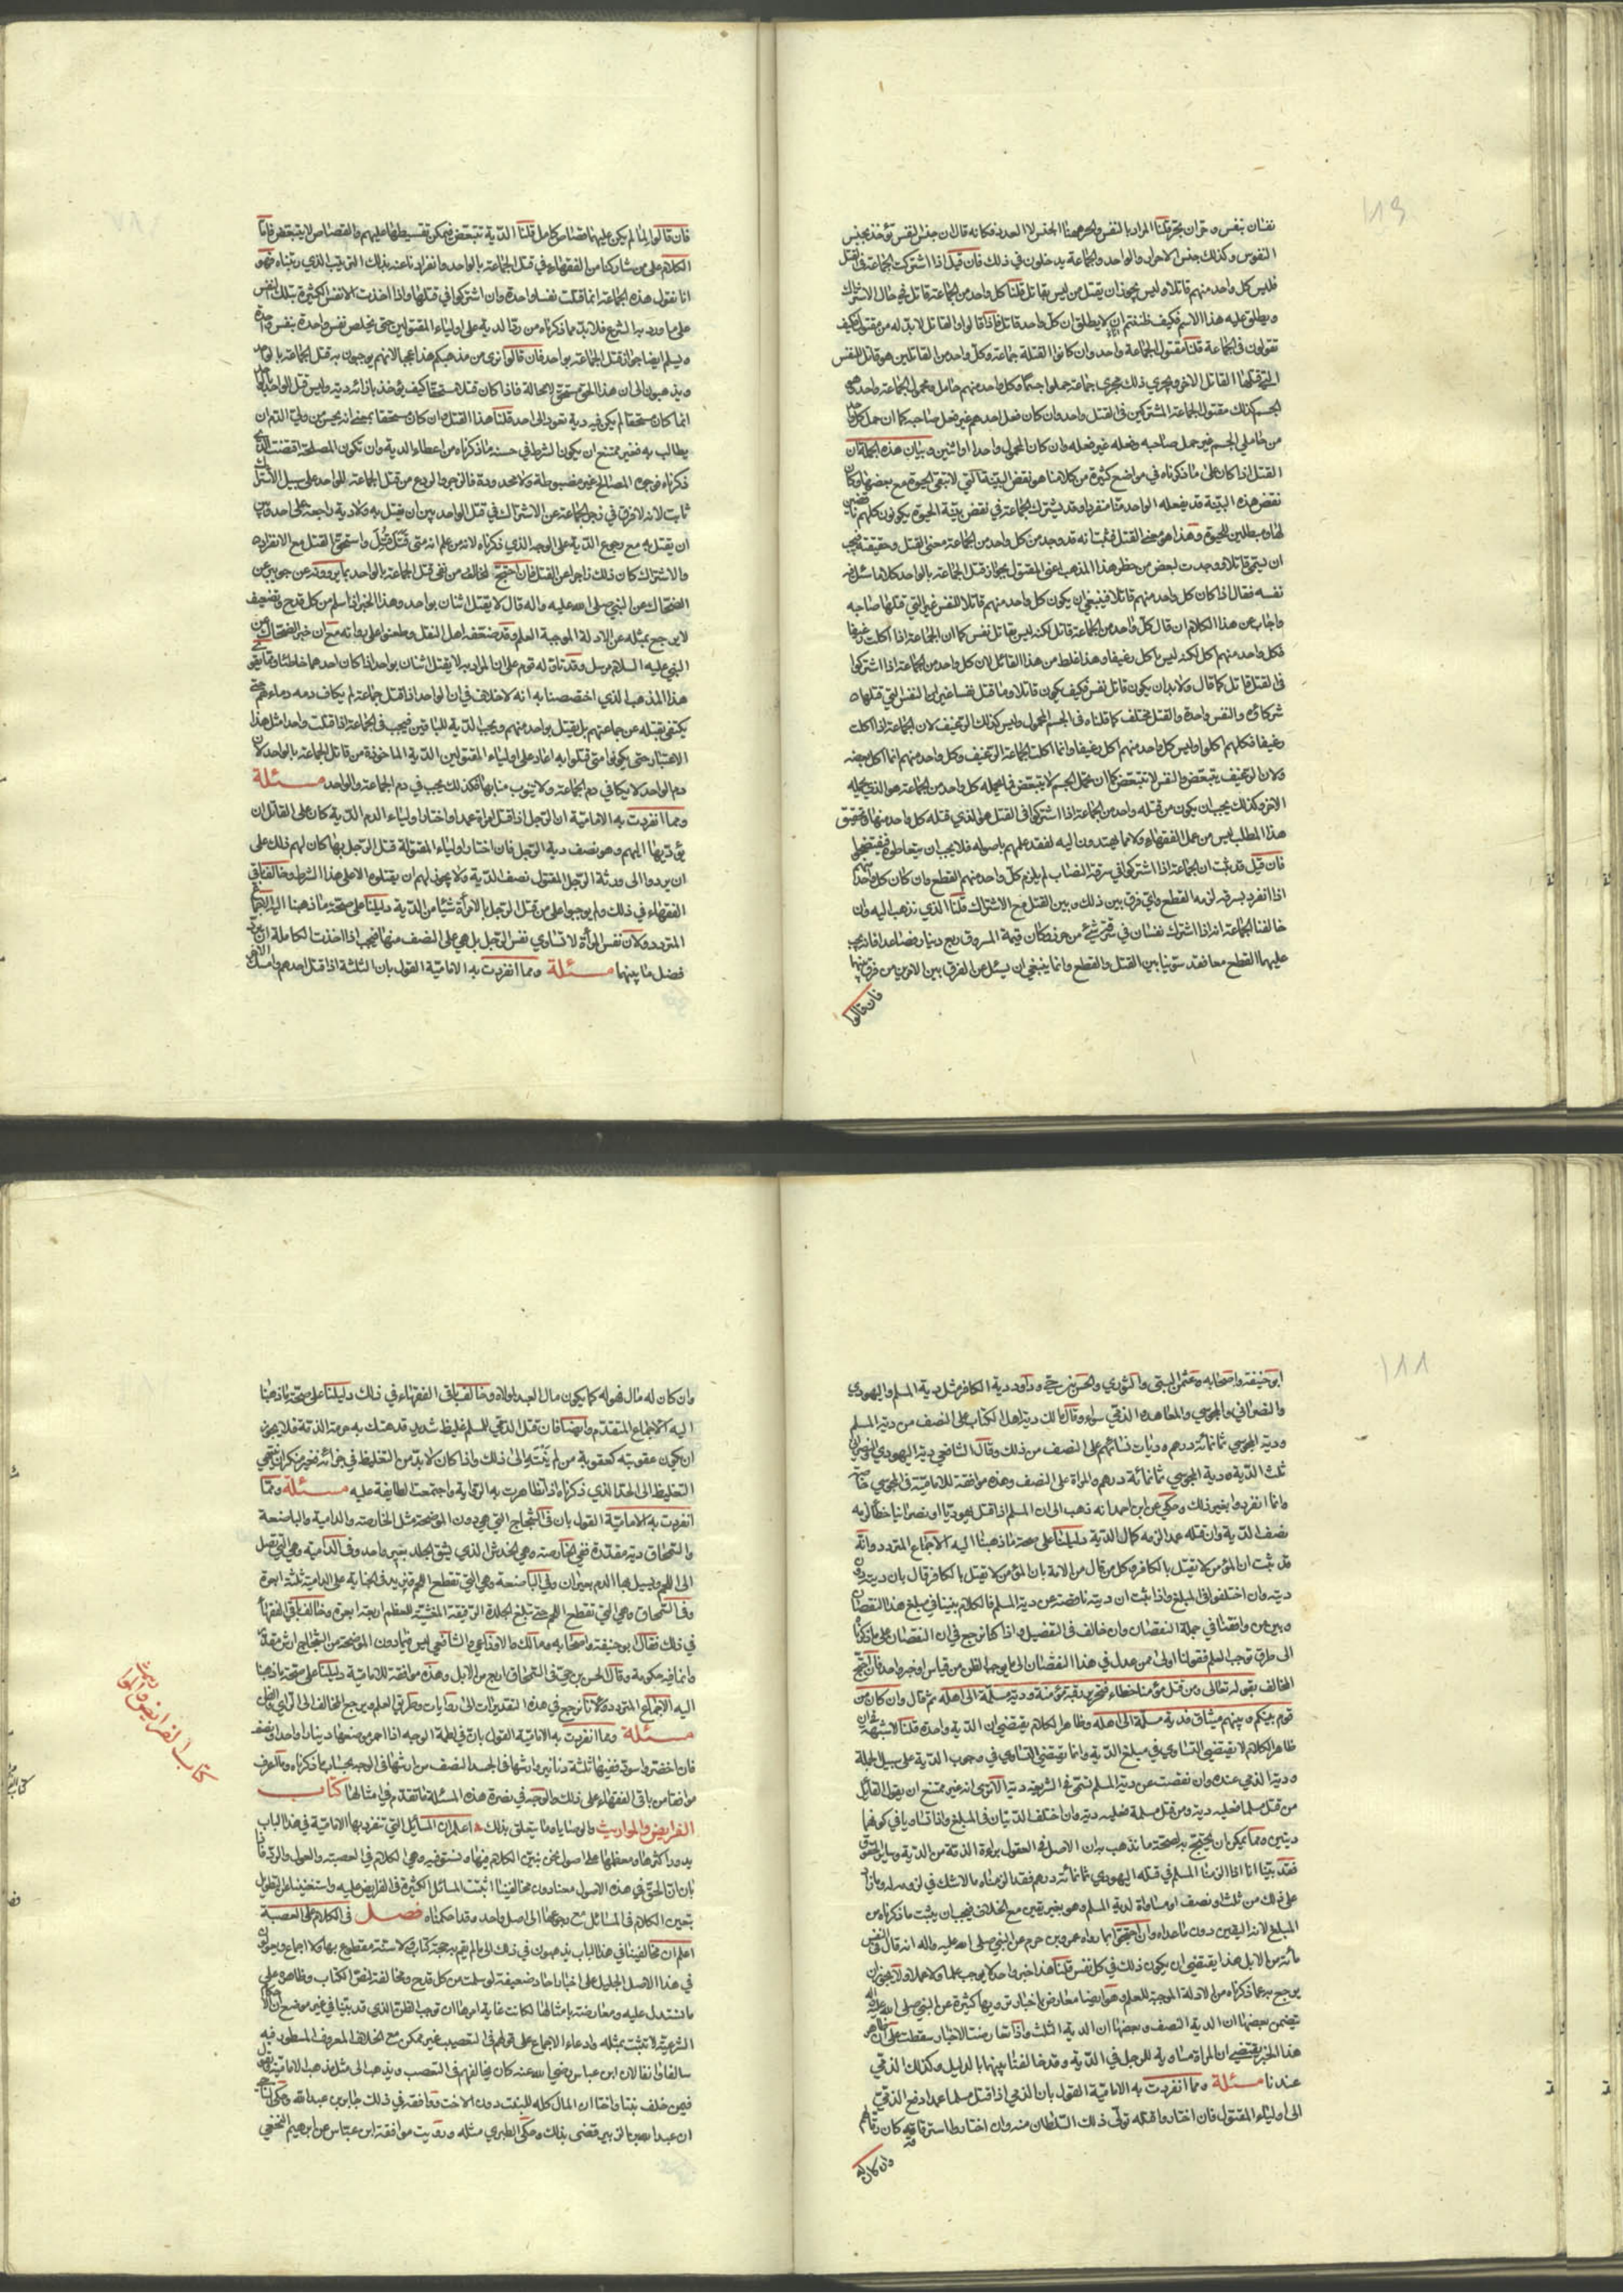 نفسان بنفس وحران بحر قلنا المراد بالنفس والحر ههنا الجنس لا العدد فكانه قال ان جنس النفس تؤخذ بجنس
النفوس وكذلك جنس الاحرار والواحد والجماعة يدخلون في ذلك فان قيل اذا اشتركت الجماعة في القتل
فليس كل واحد منهم قاتلا وليس يجوز ان يقتل من ليس بقاتل قلنا كل واحد من الجماعة قاتل في حال الاشتراك
ويطلق عليه هذا الاسم فكيف ظننتم انا لا يطلق ان كل واحد قاتل فاذا قالوا والقاتل لا بد له من مقتول فكيف
تقولون في الجماعة قلنا مقتول الجماعة واحد وان كانوا القتلة جماعة وكل واحد من القاتلين هو قاتل للنفس
التي قتلها القاتل الاخر ويجري ذلك مجرى جماعة حملوا جسما وكل واحد منهم حامل ومحمول الجماعة واحد وهو
الجسم كذلك مقتول الجماعة المشتركين في القتل واحد وان كان فعل احدهم غير فعل صاحبه كما ان حمل كل واحد
من حاملي الجسم غير حمل صاحبه وفعله غير فعله وان كان المحمول واحدا او اثنين وبيان هذه الجملة ان
القتل اذا كان على ما ذكرناه في مواضع كثيرة من كلامنا هو نقض البنية التي لا تبقى الحيوة مع نقضها وكان
نقض هذه البنية قد يفعله الواحد منا منفردا وقد يشترك الجماعة في نقض بنية الحيوة يكونون كلهم ناقضين
لها ومبطلين للحيوة وهذا هو معنى القتل فثبت انه قد وجد من كل واحد من الجماعة معنى القتل وحقيقته فيجب
ان يسمى قاتلا ووجدت لبعض من خطر هذا المذهب اعني المقتول بجواز قتل الجماعة بالواحد كلاما سئل فيه
نفسه فقال اذا كان كل واحد منهم قاتلا فينبغي ان يكون كل واحد منهم قاتلا للنفس غير التي قتلها صاحبه
واجاب عن هذا الكلام ان قال كل واحد من الجماعة قاتل لكنه ليس بقاتل نفس كما ان الجماعة اذا اكلت رغيفا
فكل واحد منهم اكل لكنه ليس باكل رغيفا وهذا غلط من هذا القائل لان كل واحد من الجماعة اذا اشتركوا
في القتل قاتل كما قال ولا بد ان يكون قاتل نفس فكيف يكون قاتلا وما قتل نفسا غير ان النفس التي قتلها
شركاؤه والنفس واحدة والقتل مختلف كما قلناه في الجسم المحمول وليس كذلك الرغيف لان الجماعة اذا اكلت
رغيفا فكلهم اكلوا وليس كل واحد منهم اكل رغيفا وانما اكلت الجماعة الرغيف وكل واحد منهم انما اكل بعضه
ولان الرغيف يتبعض والنفس لا تتبعض كما ان محمل الجسم لا يتبعض فما يحمله كل واحد من الجماعة هو الذي يحمله
الاخر وكذلك يجب ان يكون من قتله واحد من الجماعة اذا اشتركوا في القتل هو الذي قتله كل واحد منهما وتحقيق
هذا المطلب ليس من عمل الفقهاء ولا مما يهتدون اليه لفقد علمهم باصوله فلا يجب ان يتعاطوه فيفتضحوا
فان قيل قد ثبت ان الجماعة اذا اشتركوا في سرقة النصاب لم يلزم كل واحد منهم القطع وان كان كل واحد منهم
اذا انفرد بسرقته لزمه القطع واي فرق بين ذلك وبين القتل مع الاشتراك قلنا الذي نذهب اليه وان
خالفنا الجماعة انه اذا اشترك نفسان في سرقة شئ من حرز وكان قيمة المسروق ربع دينار فصاعدا فانه يجب
عليهما القطع معا فقد سوينا بين القتل والقطع وانما ينبغي ان يسئل عن الفرق بين الامرين من فرق بينهما
فان قالوا
فان قالوا لنا لم يكن عليهما قصاص كامل قلنا الدية تتبعض فيمكن تقسيطها عليهم والقصاص لا يتبعض فاما
الكلام على من شاركنا من الفقهاء في قتل الجماعة بالواحد وانفرادنا عنه بذلك الترتيب الذي رتبناه فهو
انا نقول هذه الجماعة انما قتلت نفسا واحدة وان اشتركوا في قتلها واذا اخذت الانفس الكثيرة بتلك النفس
على ما ورد به الشرع فلا بد مما ذكرناه من رد الدية على اولياء المقتولين حتى يخلص نفس واحدة بنفس واحدة
ويسلم ايضا جواز قتل الجماعة بواحد فان قالوا نرى من مذهبكم هذا عجبا لانهم يوجبون به قتل الجماعة بالواحد
ويذهبون الى ان هذا الحق مستحق لا محالة فاذا كان قتلا مستحقا كيف يؤخذ بازائه دية وليس قتل الواحد بالواحد
انما كان مستحقا لم يكن فيه دية تعود الى احد قلنا هذا القتل وان كان مستحقا بمعنى انه يحسن من ولي الدم ان
يطالب به فغير ممتنع ان يكون الشرط في حسنه ما ذكرناه من اعطاء الدية وان تكون المصلحة اقتضت الذي
ذكرناه فوجوه المصالح غير مضبوطة ولا محدودة فالزجر والردع من قتل الجماعة للواحد على سبيل الاشتراك
ثابت لانه لا فرق في زجر الجماعة عن الاشتراك في قتل الواحد بين ان يقتل به ولا دية راجعة على احد وبين
ان يقتل به مع رجوع الدية على الوجه الذي ذكرناه لانه من علم انه متى قتل قتل واستحق القتل مع الانفراد
والاشتراك كان ذلك زاجرا عن القتل فان احتج المخالف من نفى قتل الجماعة بالواحد بما يروونه عن جويبر عن
الضحاك عن النبي صلى الله عليه واله قال لا يقتل اثنان بواحد وهذا الخبر اذا سلم من كل قدح وتضعيف
لا يرجع بمثله عن الادلة الموجبة العلم وقد ضعفه اهل النقل وطعنوا على رواته مع ان خبر الضحاك عن
النبي عليه السلام مرسل وقد تاوله قوم على ان المراد به لا يقتل اثنان بواحد اذا كان احدهما خاطئا ومما يقوي
هذا المذهب الذي اختصصنا به انه لا خلاف في ان الواحد اذا قتل جماعة لم يكاف دمه دماءهم حتى
يكتفى بقتله عن جماعتهم بل يقتل بواحد منهم ويجب الدية للباقين فيجب في الجماعة اذا قتلت واحدا مثل هذا
الاعتبار حتى يكونوا متى قتلوا به اعاد على اولياء المقتولين الدية الماخوذة من قاتل الجماعة بالواحد لان
دم الواحد لا يكافي دم الجماعة ولا ينوب منابها فكذلك يجب في دم الجماعة والواحد مسئلة
ومما انفردت به الامامية ان الرجل اذا قتل امراة عمدا واختار اولياء الدم الدية كان على القاتل ان
يؤديها اليهم وهو نصف دية الرجل فان اختار اولياء المقتولة قتل الرجل بها كان لهم ذلك على
ان يردوا الى ورثة الرجل المقتول نصف الدية ولا يجوز لهم ان يقتلوه الا على هذا الشرط وخالف باقي
الفقهاء في ذلك ولم يوجبوا على من قتل الرجل بالامرأة شيئا من الدية دليلنا على صحة ما ذهبنا اليه الاجماع
المتردد ولان نفس المرأة لا تساوي نفس الرجل بل هي على النصف منها فيجب اذا اخذت الكاملة ان يرد
فضل ما بينهما مسئلة ومما انفردت به الامامية القول بان الثلثة اذا قتل احدهم وامسك الاخر
ابو حنيفة واصحابه وعثمن البتي والثوري والحسن بن حي وداود دية الكافر مثل دية المسلم واليهودي
والنصراني والمجوسي والمعاهد والذمي سواء وقال مالك دية اهل الكتاب على النصف من دية المسلم
ودية المجوسي ثمانمائة درهم وديات نسائهم على النصف من ذلك وقال الشافعي دية اليهودي والنصراني
ثلث الدية ودية المجوسي ثمانمائة درهم والمراة على النصف وهذه موافقة للامامية في المجوسي خاصة
وانما انفردوا بغير ذلك وحكي عن ابن احمد انه ذهب الى ان المسلم اذا قتل يهوديا او نصرانيا خطأ لزمه
نصف الدية وان قتله عمدا لزمه كمال الدية دليلنا على صحة ما ذهبنا اليه الاجماع المتردد وانه
قد ثبت ان المؤمن لا يقتل بالكافر وكل من قال من الامة بان المؤمن لا يقتل بالكافر قال بان ديته دون
ديته وان اختلفوا في المبلغ واذا ثبت ان ديته ناقصة عن دية المسلم فالكلام بيننا في مبلغ هذا النقصان
وبين من وافقنا في جملة النقصان وان خالف في التفصيل واذا كنا نرجع في ان النقصان على ما ذكرناه
الى طرق توجب العلم فقولنا اولى ممن عدل في هذا النقصان الى ما يوجب الظن من قياس او خبر واحد فان احتج
المخالف بقوله تعالى ومن قتل مؤمنا خطاء فتحرير رقبة مؤمنة ودية مسلمة الى اهله ثم قال وان كان من
قوم بينكم وبينهم ميثاق فدية مسلمة الى اهله وظاهر الكلام يقتضي ان الدية واحدة قلنا لا شبهة في ان
ظاهر الكلام لا يقتضي التساوي في مبلغ الدية وانما يقتضي التساوي في وجوب الدية على سبيل الجملة
ودية الذمي عندنا وان نقصت عن دية المسلم تسمى في الشريعة دية الا ترى انه غير ممتنع ان يقول القائل
من قتل مسلما فعليه دية ومن قتل مسلمة فعليه دية وان اختلف الديتان في المبلغ واذا تساويا في كونهما
ديتين ومما يمكن ان يحتج به لصحة ما نذهب به ان الاصل في العقول براءة الذمة من الدية وساير الحقوق
فقد بينا انا اذا الزمنا المسلم في قتله اليهودي ثمانمائة درهم فقد الزمناه ما لا شك في لزومه له وما زاد
على ذلك من ثلث ونصف او مساواة لدية المسلم وهو بغير يقين مع الخلاف فيجب ان يثبت ما ذكرناه من
المبلغ لانه اليقين دون ما عداه وان احتجوا بما رواه عمرو بن حزم عن النبي صلى الله عليه واله انه قال في النفس
مائة من الابل هذا يقتضي ان يكون ذلك في كل نفس قلنا هذا خبر واحد لا يوجب علما ولا عملا ولا يجوز ان
يرجع به عما ذكرناه من الادلة الموجبة للعلم وهو ايضا معارض باخبار تروونها كثيرة عن النبي صلى الله عليه واله
تتضمن بعضها ان الدية النصف وبعضها ان الدية الثلث واذا تعارضت الاخبار سقطت على ان ظاهر
هذا الخبر يقتضي ان المراة مساوية للرجل في الدية وقد خالفنا بينهما بالدليل وكذلك الذمي
عندنا مسئلة ومما انفردت به الامامية القول بان الذمي اذا قتل مسلما عمدا دفع الذمي
الى اولياء المقتول فان اختاروا قتله تولى ذلك السلطان منه وان اختاروا استرقاقه كان رقا لهم
وان كان له
وان كان له مال فهو له كما يكون مال العبد لمولاه وخالف باقي الفقهاء في ذلك دليلنا على صحة ما ذهبنا
اليه الاجماع المتقدم وايضا فان قتل الذمي للمسلم غليظ شديد قد هتك به حرمة الذمة فلا يجوز
ان يكون عقوبته كعقوبة من لم ينته الى ذلك واذا كان لا بد من التغليظ في جزائه فغير منكر ان ينتهي
التغليظ الى الحد الذي ذكرناه اذا تظاهرت به الرواية واجتمعت الطايفة عليه مسئلة ومما
انفردت به الامامية القول بان في الشجاج التي هي دون الموضحة مثل الخارصة والدامية والباضعة
والسمحاق دية مقدرة ففي الخارصة وهي الخدش الذي يشق الجلد بعير واحد وفي الدامية وهي التي تصل
الى اللحم ويسيل بها الدم بعيران وفي الباضعة وهي التي تقطع اللحم وتزيد في الجناية على الدامية ثلثة ابعرة
وفي السمحاق وهي التي تقطع اللحم حتى تبلغ الجلدة الرقيقة المغشية للعظم اربعة ابعرة وخالف باقي الفقهاء
في ذلك فقال ابو حنيفة واصحابه ومالك والاوزاعي والشافعي ليس فيما دون الموضحة من الشجاج ارش مقدر
وانما فيه حكومة وقال الحسن بن حي في السمحاق اربع من الابل وهذه موافقة للامامية دليلنا على صحة ما ذهبنا
اليه الاجماع المتردد ولانا نرجع في هذه التقديرات الى روايات وطريق العلم ويرجع المخالف الى الراي والظن
مسئلة ومما انفردت به الامامية القول بان في لطمة الوجه اذا احمر موضعها دينارا واحدا ونصف
فان اخضر واسود ففيها ثلثة دنانير وارشها في الجسد النصف من ارشها في الوجه بحساب ما ذكرناه ولا اعرف
موافقا من باقي الفقهاء على ذلك والوجه في نصرة هذه المسئلة ما تقدم في امثالها كتاب
الفرايض والمواريث والوصايا وما يتعلق بذلك اعلم ان المسائل التي تنفرد بها الامامية في هذا الباب
يدور اكثرها ومعظمها على اصول نحن نبين الكلام فيها ونستوفيه وهي الكلام في العصبة والعول والرد فاذا
بان ان الحق في هذه الاصول معنا دون مخالفينا ابتنت المسائل الكثيرة في الفرايض عليه واستغنينا عن التطويل
بتعيين الكلام في المسائل مع رجوعها الى اصل واحد وقد احكمناه فصل في الكلام على العصبة
اعلم ان مخالفينا في هذا الباب يذهبون في ذلك الى ما لم يقم به حجة كتاب ولا سنة مقطوع بها ولا اجماع ويعولون
في هذا الاصل الجليل على اخبار احاد ضعيفة لو سلمت من كل قدح ومخالفة لنص الكتاب وظاهره على
ما نستدل عليه ومعارضة بامثالها لكانت غاية امرها ان توجب الظن الذي قد بينا في غير موضع ان الاحكام
الشرعية لا تثبت بمثله وادعاء الاجماع على قولهم في التعصيب غير ممكن مع الخلاف المعروف المسطور فيه
سالفا وانفا لان ابن عباس رضي الله عنه كان يخالفهم في التعصيب ويذهب الى مثل مذهب الامامية ويقول
فيمن خلف بنتا واختا ان المال كله للبنت دون الاخت ووافقه في ذلك جابر بن عبد الله وحكي الساجي
ان عبد الله بن الزبير قضى بذلك وحكى الطبري مثله ورويت موافقة ابن عباس عن ابرهيم النخعي
كتاب الفرايض والمواريث